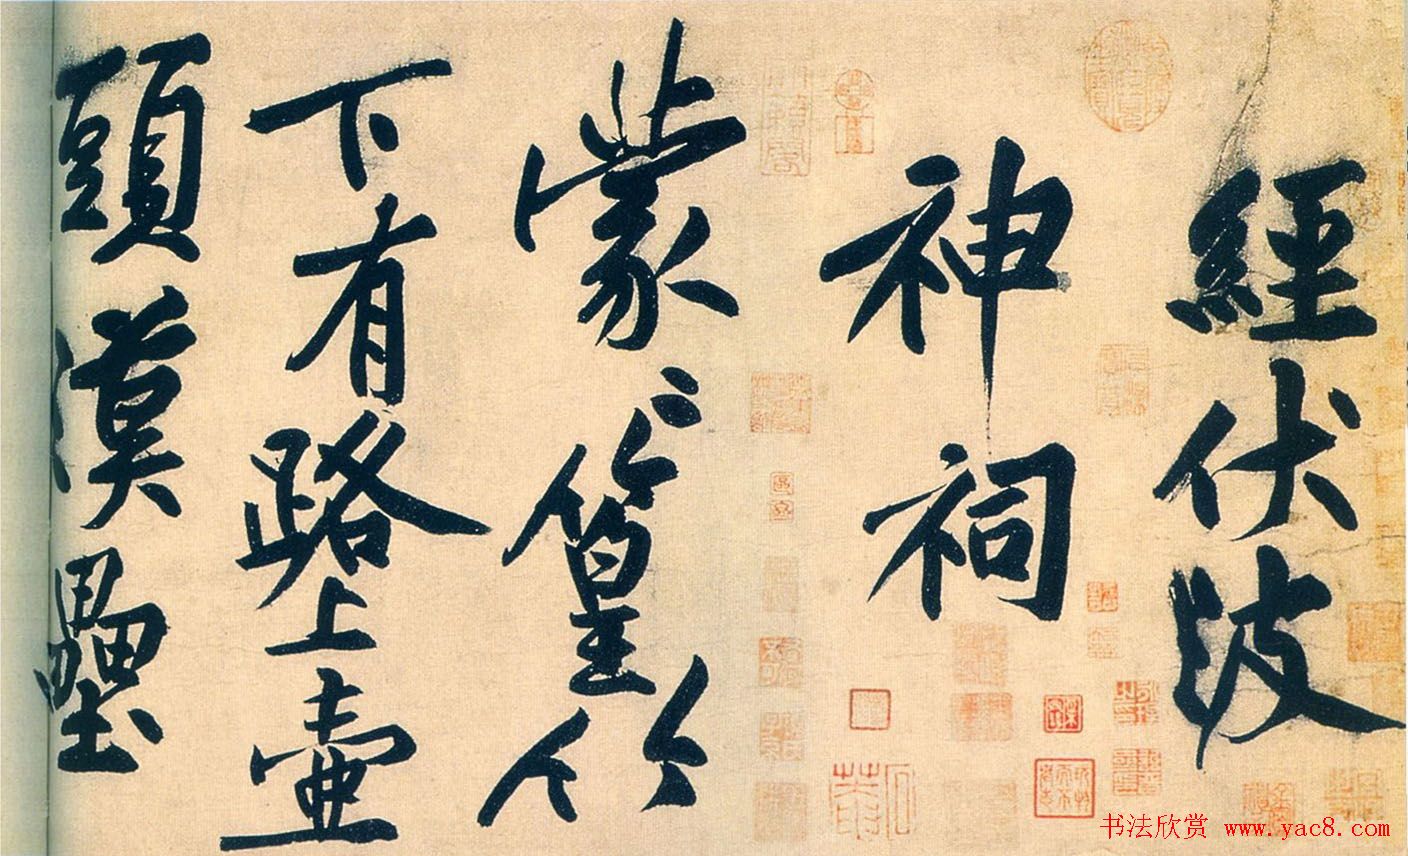 經伏波
神祠
蒙〻篁竹
下有路上壺
頭漢壘
书法欣赏 www.yac8.com